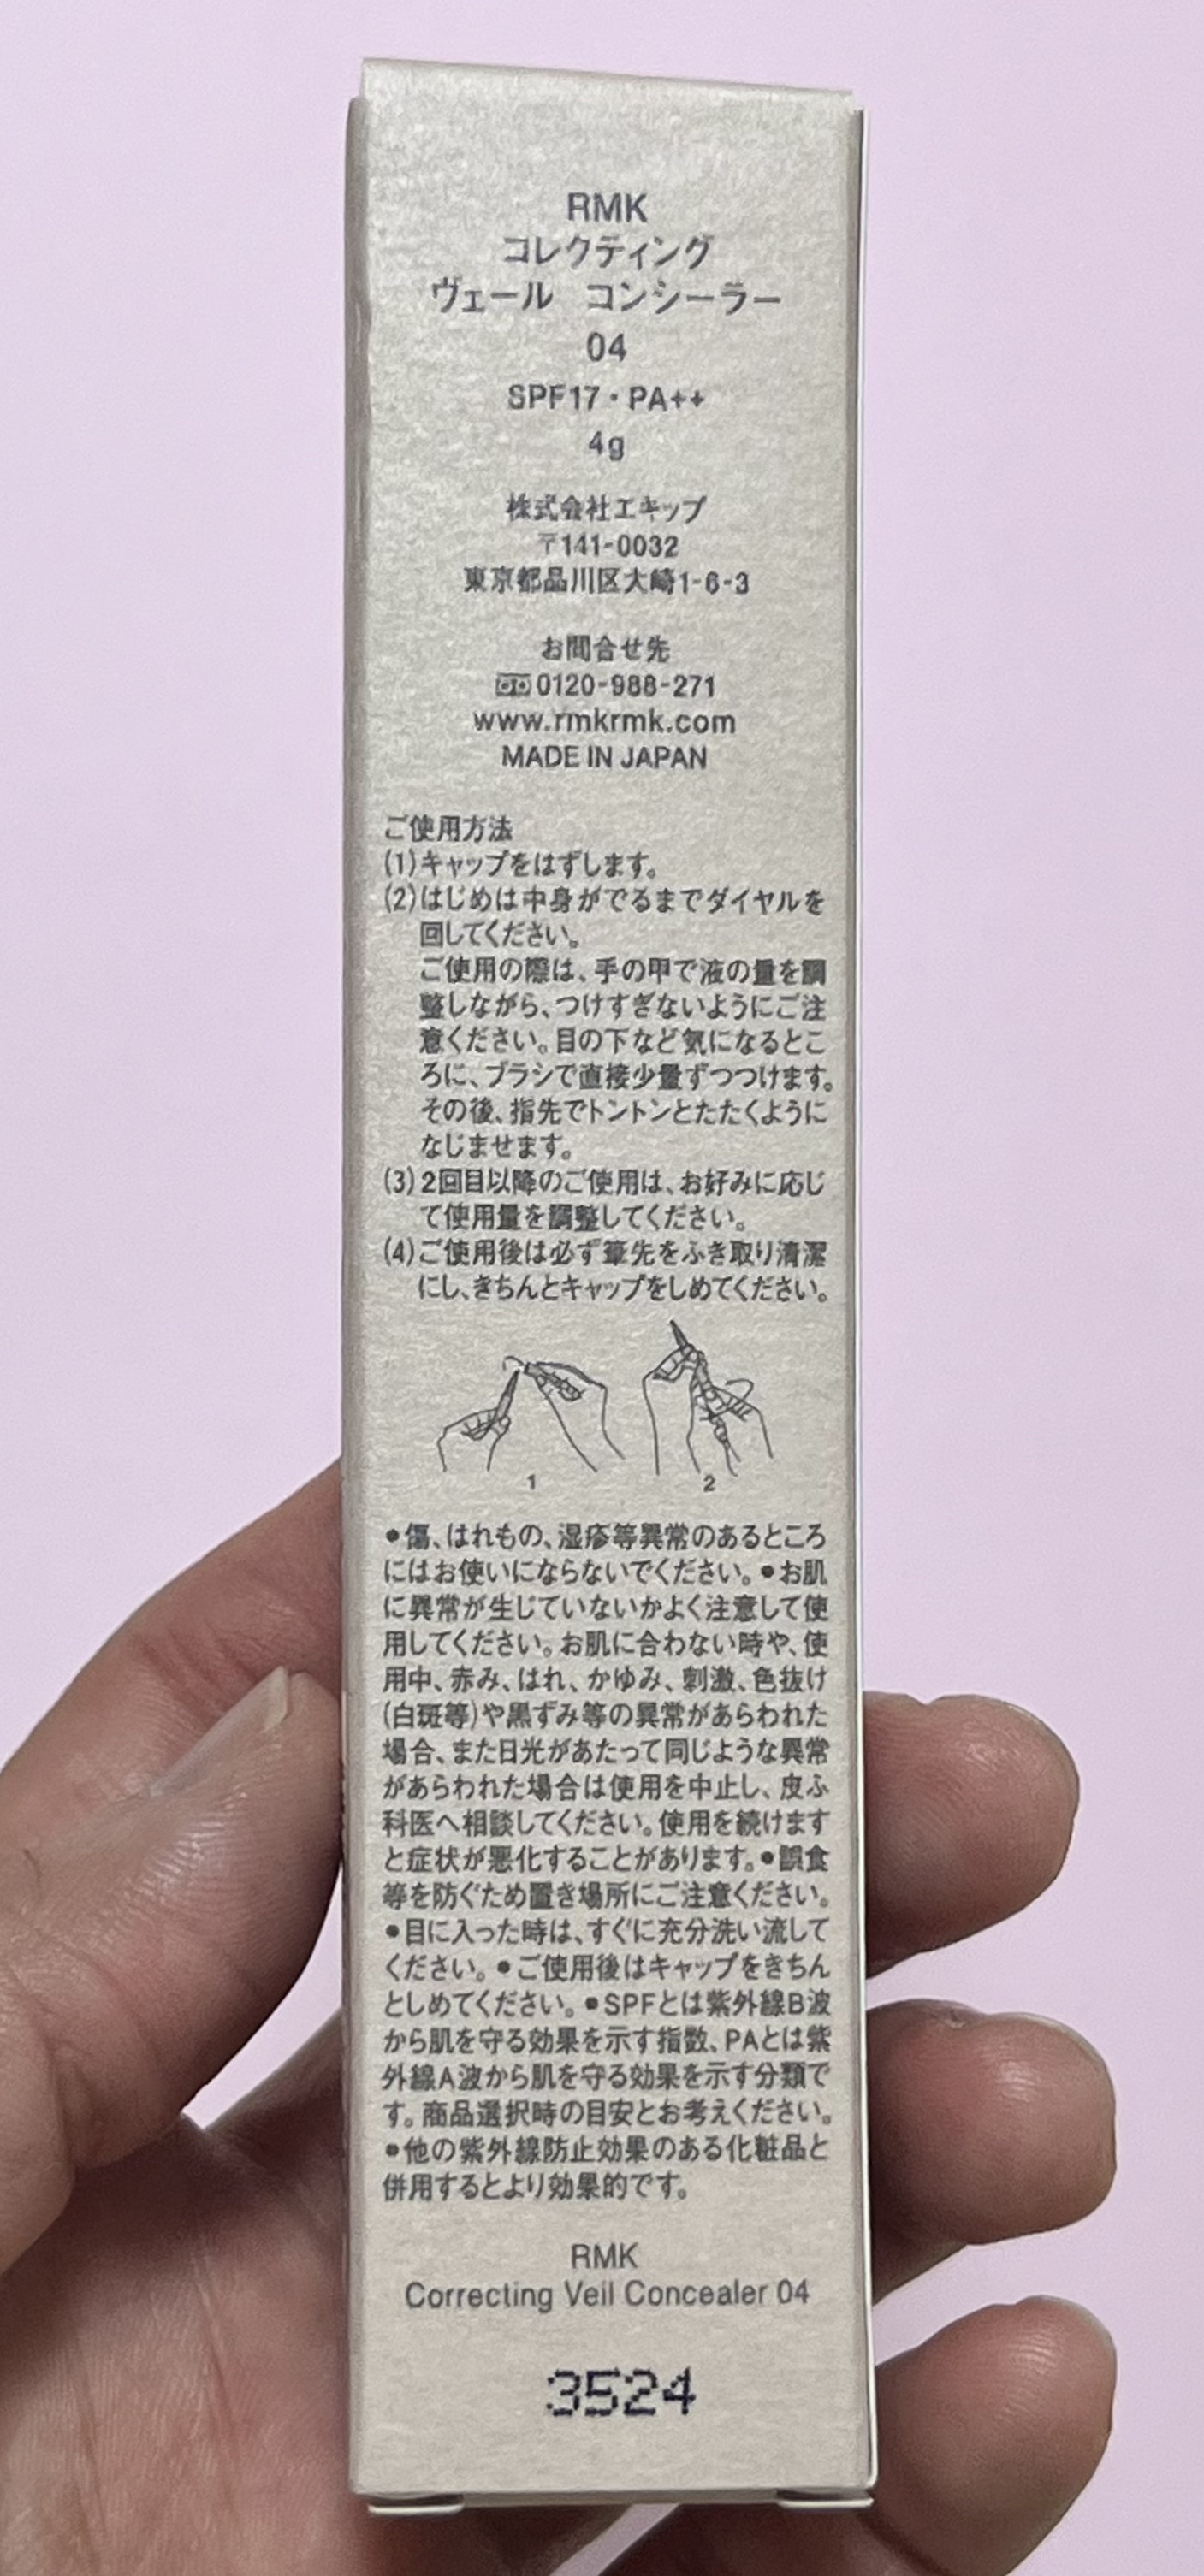 RMK
コレクティング
ヴェール コンシーラー
04
SPF17・PA++
4g
株式会社エキップ
〒141-0032
東京都品川区大崎1-6-3
お問合せ先
0120-988-271
www.rmkrmk.com
MADE IN JAPAN
ご使用方法
(1)キャップをはずします。
(2)はじめは中身がでるまでダイヤルを
回してください。
ご使用の際は、手の甲で液の量を調
整しながら、つけすぎないようにご注
意ください。目の下など気になるとこ
ろに、ブラシで直接少量ずつつけます。
その後、指先でトントンとたたくように
なじませます。
(3)2回目以降のご使用は、お好みに応じ
て使用量を調整してください。
(4)ご使用後は必ず筆先をふき取り清潔
にし、きちんとキャップをしめてください。
1
2
●傷、はれもの、湿疹等異常のあるところ
にはお使いにならないでください。●お肌
に異常が生じていないかよく注意して使
用してください。お肌に合わない時や、使
用中、赤み、はれ、かゆみ、刺激、色抜け
(白斑等)や黒ずみ等の異常があらわれた
場合、また日光があたって同じような異常
があらわれた場合は使用を中止し、皮ふ
科医へ相談してください。使用を続けます
と症状が悪化することがあります。●誤食
等を防ぐため置き場所にご注意ください。
●目に入った時は、すぐに充分洗い流して
ください。●ご使用後はキャップをきちん
としめてください。●SPFとは紫外線B波
から肌を守る効果を示す指数、PAとは紫
外線A波から肌を守る効果を示す分類で
す。商品選択時の目安とお考えください。
●他の紫外線防止効果のある化粧品と
併用するとより効果的です。
RMK
Correcting Veil Concealer 04
3524